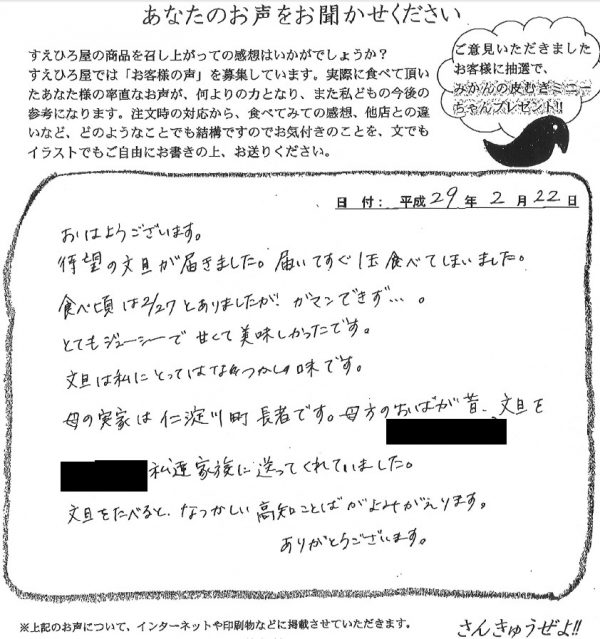 あなたのお声をお聞かせください
すえひろ屋の商品を召し上がっての感想はいかがでしょうか？
すえひろ屋では「お客様の声」を募集しています。実際に食べて頂い
たあなた様の率直なお声が、何よりの力となり、また私どもの今後の
参考になります。注文時の対応から、食べてみての感想、他店との違
いなど、どのようなことでも結構ですのでお気付きのことを、文でも
イラストでもご自由にお書きの上、お送りください。
ご意見いただきました
お客様に抽選で、
みかんの皮むきミニ
ちゃんプレゼント!!
日 付： 平成 29 年 2 月 22 日
おはようございます。
待望の文旦が届きました。届いてすぐ1玉食べてしまいました。
食べ頃は2/27とありましたが! ガマンできず…。
とてもジューシーで甘くて美味しかったです。
文旦は私にとってはなつかしの味です。
母の実家は仁淀川町長者です。母方のおばが昔、文旦を
私達家族に送ってくれていました。
文旦をたべると、なつかしい高知ことばがよみがえります。
ありがとうございます。
※上記のお声について、インターネットや印刷物などに掲載させていただきます。
さんきゅうぜよ!!